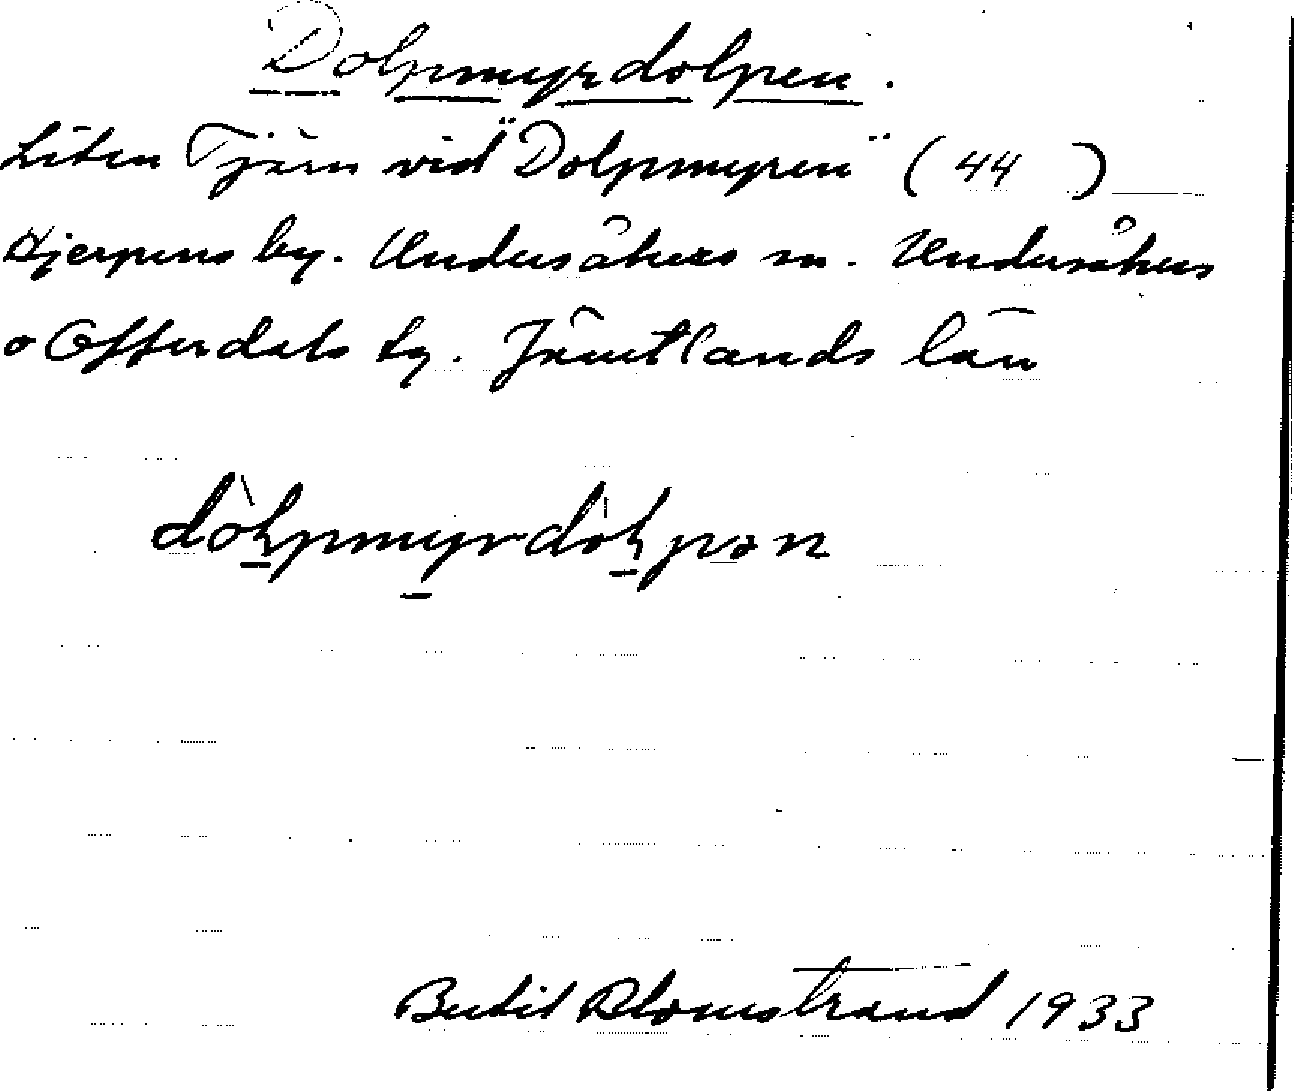 Dolpmyrdolpen.
Liten Tjärn vid "Dolpmyren" (44)
Hjerpens by. Undersåkers sn. Undersåkers
o Offerdals tg. Jämtlands län
dòlpmyrdòlpən
Bertil Blomstrand 1933